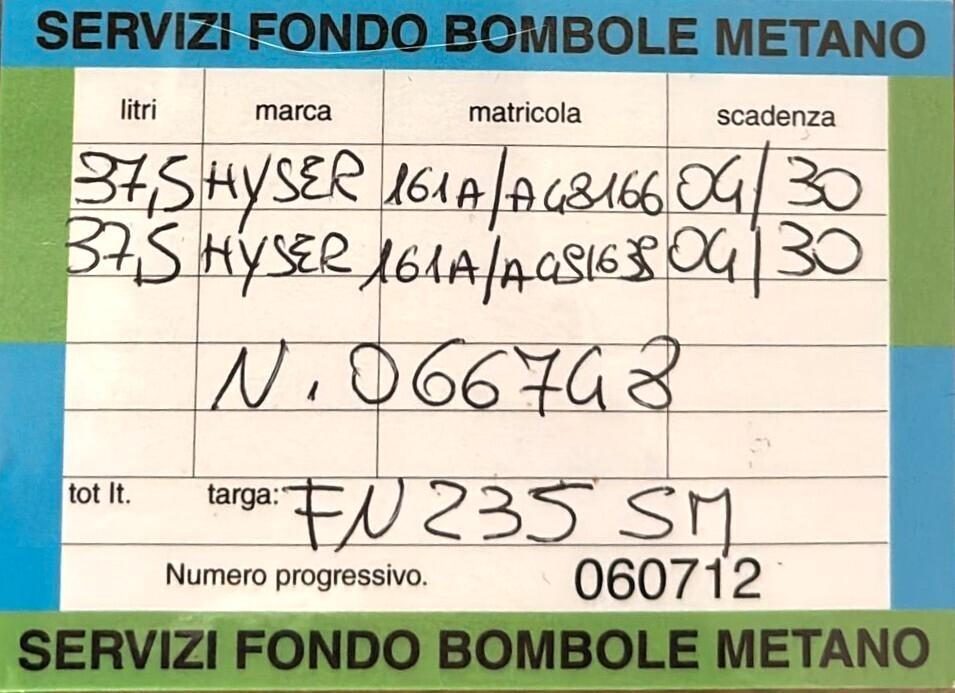 SERVIZI FONDO BOMBOLE METANO
litri marca matricola scadenza
37,5 HYSER 161A/AG8166 04/30
37,5 HYSER 04/30
N. 066748
tot lt. targa: FN235 SM
Numero progressivo. 060712
SERVIZI FONDO BOMBOLE METANO